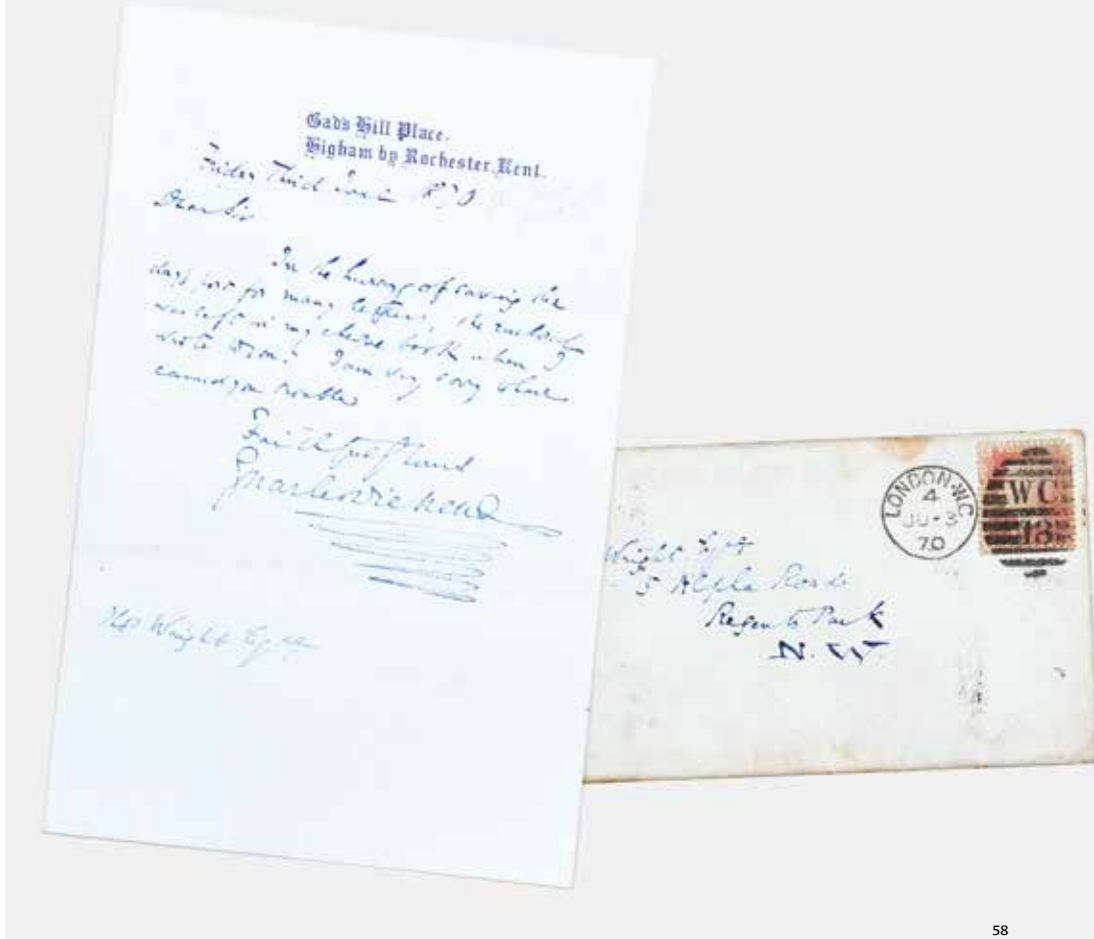 Gad's Hill Place.
Higham by Rochester, Kent.
Friday Third June 1870
Dear Sir
In the hurry of saving the
days post for many letters, the enclosed
was left in my cheque book when I
wrote to you. I am very sorry to have
caused you trouble
Faithfully Yours
Charles Dickens
Thos Wright Esqre
LONDON·W.C
4
JU-3
70
WC
13
Wright Esqre
5 Alpha Road
Regents Park
N.W
58